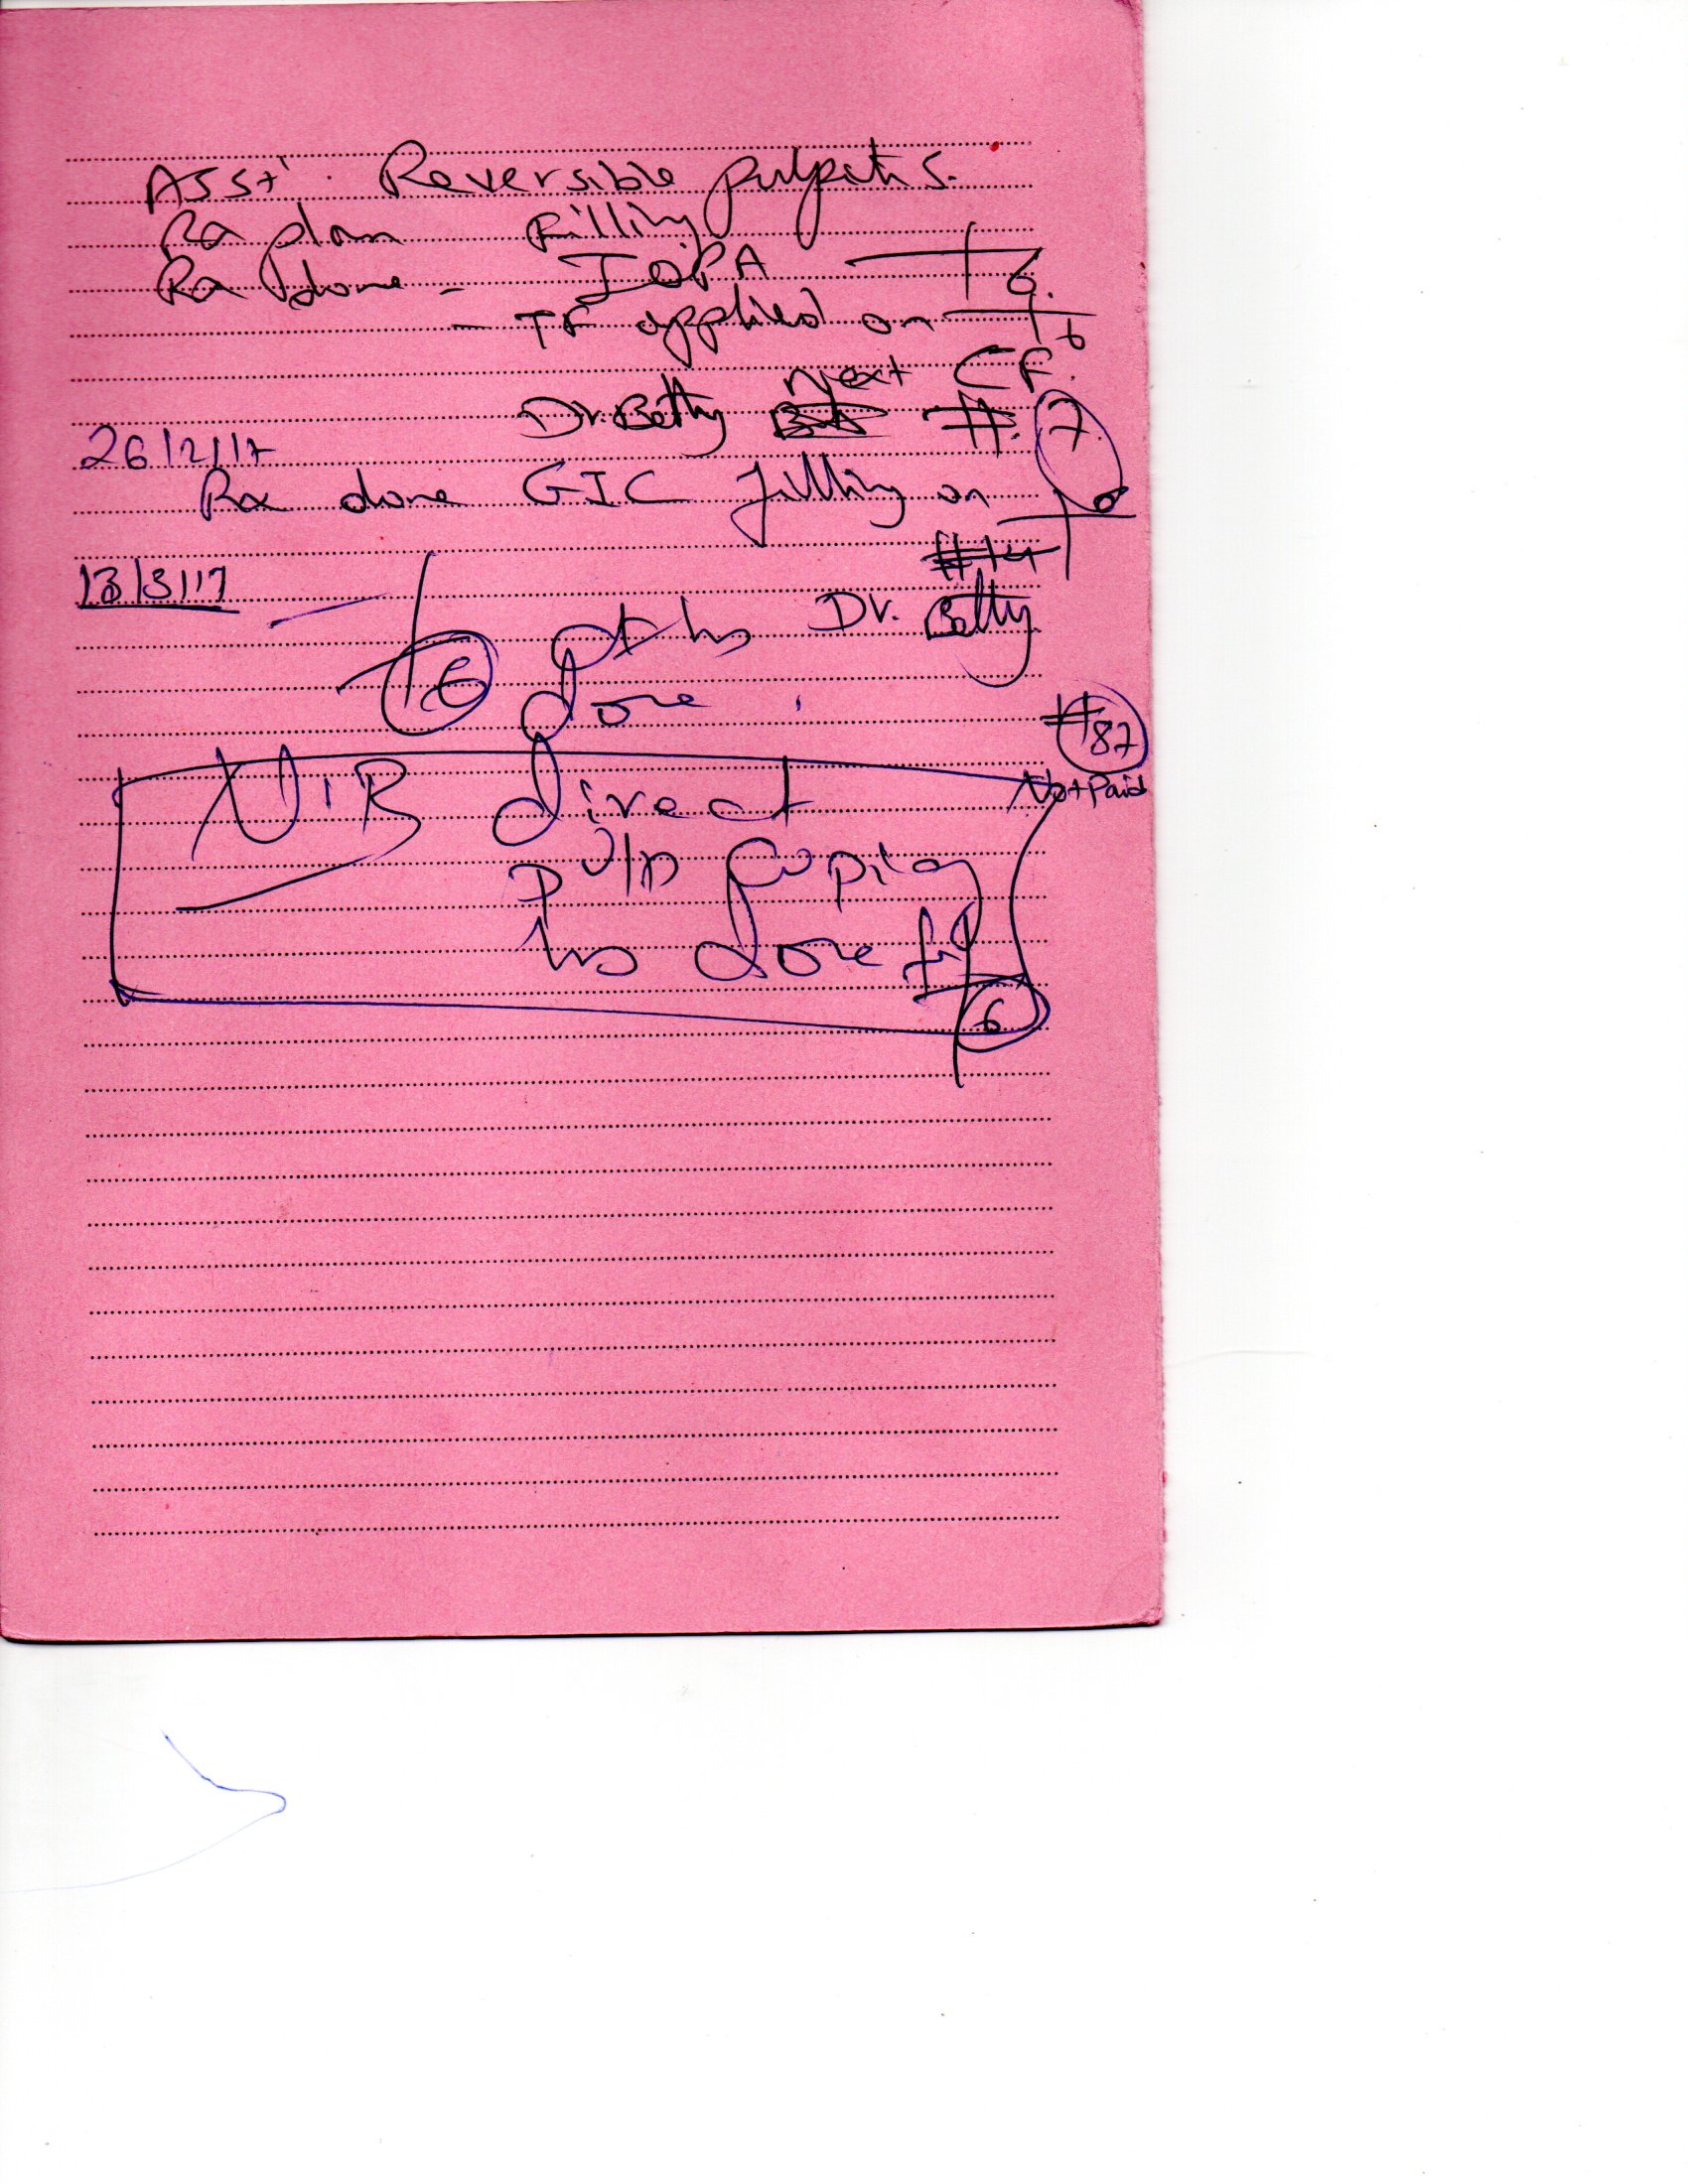 Asst: Reversible pulpitis.
Rx plan Filling
Rx done - IOPA 6.
- TF applied on 6
Next CF.
Dr. Betty #. 7
26/2/17
Rx done GIC filling on 6
#14
13/3/17
Dr. Betty
6
done
#87
Not Paid
N.B direct
pulp
done
6